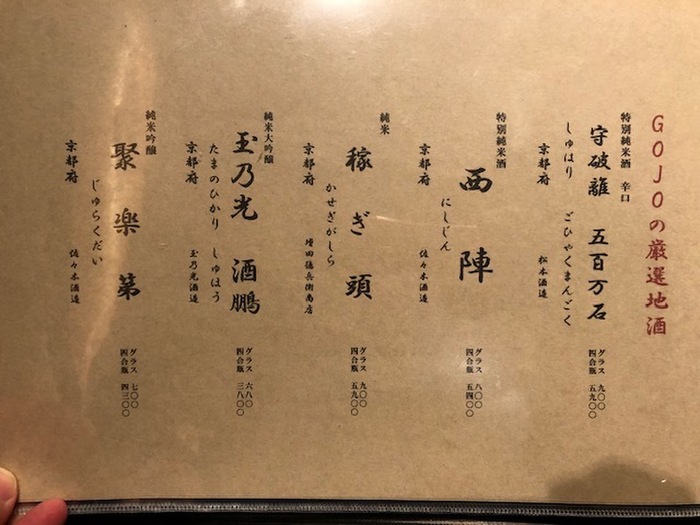 GOJOの厳選地酒
特別純米酒 辛口
守破離 五百万石
しゅはり ごひゃくまんごく
京都府 松本酒造
グラス 九〇〇
四合瓶 五九〇〇
特別純米酒
西陣
にしじん
京都府 佐々木酒造
グラス 八〇〇
四合瓶 五四〇〇
純米
稼ぎ頭
かせぎがしら
京都府 増田德兵衞商店
グラス 九〇〇
四合瓶 五九〇〇
純米大吟醸
玉乃光 酒鵬
たまのひかり しゅほう
京都府 玉乃光酒造
グラス 六八〇
四合瓶 三八〇〇
純米吟醸
聚楽第
じゅらくだい
京都府 佐々木酒造
グラス 七〇〇
四合瓶 四三〇〇